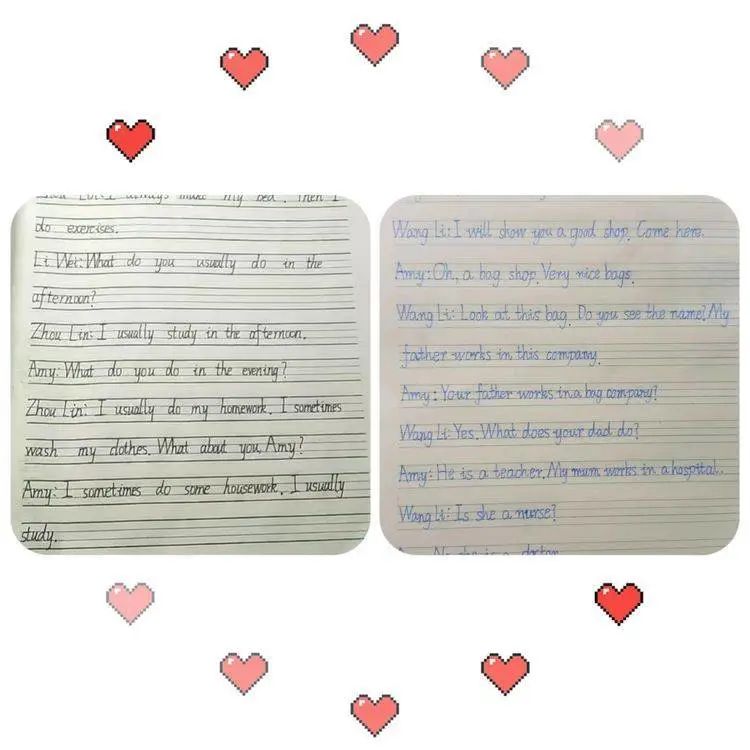 always make my bed. Then I
do exercises.
Li Wei: What do you usually do in the
afternoon?
Zhou Lin: I usually study in the afternoon.
Amy: What do you do in the evening?
Zhou Lin: I usually do my homework. I sometimes
wash my clothes. What about you, Amy?
Amy: I sometimes do some housework. I usually
study.
Wang Li: I will show you a good shop. Come here.
Amy: Oh, a bag shop. Very nice bags.
Wang Li: Look at this bag. Do you see the name? My
father works in this company.
Amy: Your father works in a bag company?
Wang Li: Yes. What does your dad do?
Amy: He is a teacher. My mum works in a hospital.
Wang Li: Is she a nurse?
No she is a doctor